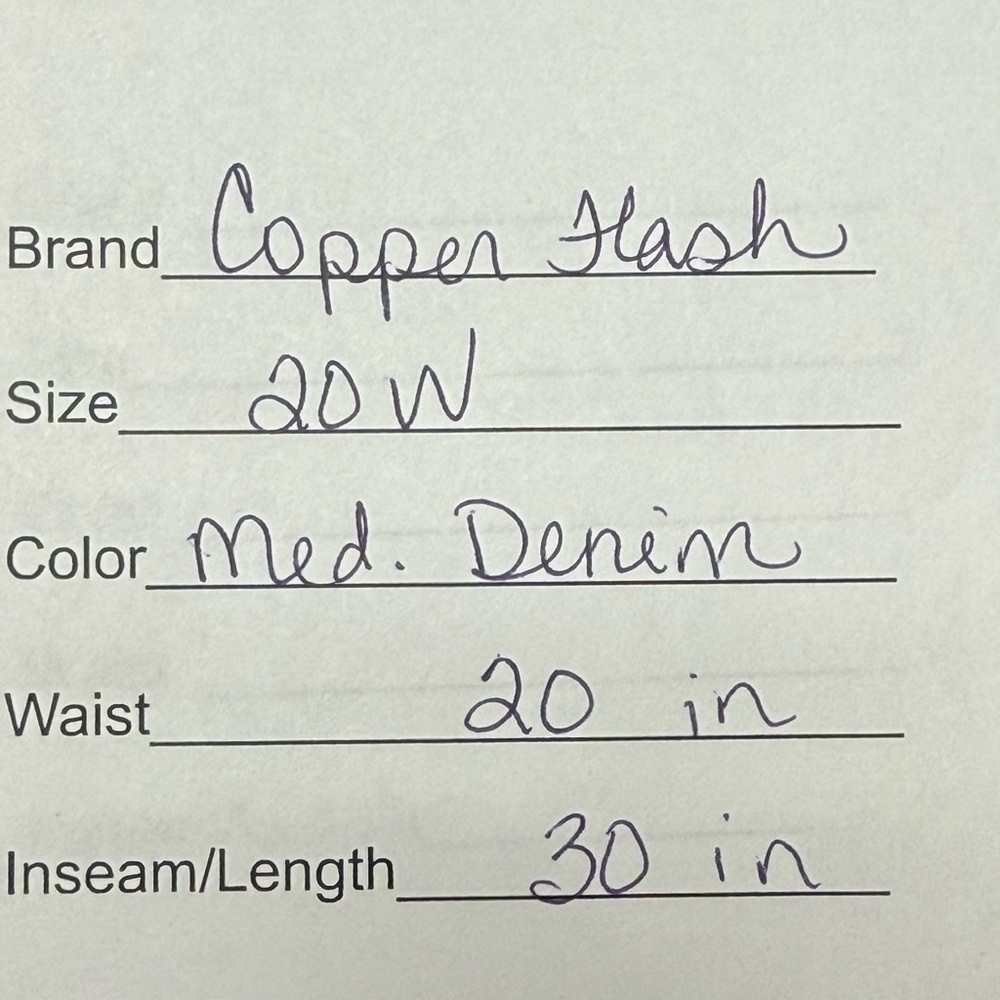 Brand Copper Flash
Size 20W
Color Med. Denim
Waist 20 in
Inseam/Length 30 in